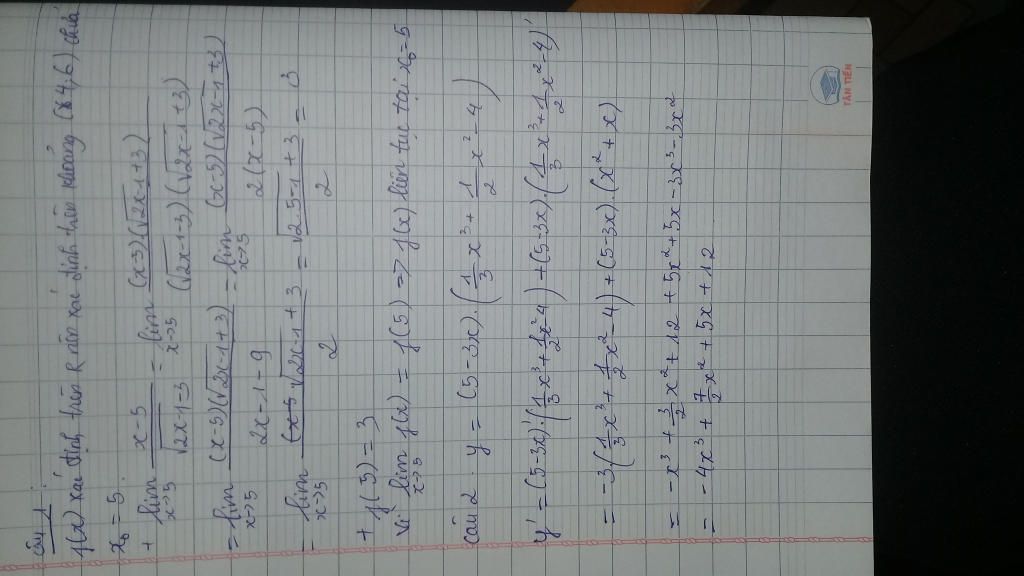 Câu 1:
f(x) xác định trên R nên xác định trên khoảng (4,6) chứa
x₀ = 5.
+ lim x→5 (x-5)/(√2x-1-3) = lim x→5 (x-5)(√2x-1+3)/(√2x-1-3)(√2x-1+3)
= lim x→5 (x-5)(√2x-1+3)/(2x-1-9) = lim x→5 (x-5)(√2x-1+3)/2(x-5)
= lim x→5 (x-5 √2x-1+3)/2 = (√2.5-1+3)/2 = 3
+ f(5) = 3
Vì lim x→5 f(x) = f(5) => f(x) liên tục tại x₀=5
Câu 2. y = (5-3x).(1/3 x³ + 1/2 x² - 4)
y' = (5-3x)'.(1/3 x³ + 1/2 x² 4) + (5-3x).(1/3 x³ + 1/2 x² - 4)'
= -3(1/3 x³ + 1/2 x² - 4) + (5-3x).(x² + x)
= -x³ + 3/2 x² + 12 + 5x² + 5x - 3x³ - 3x²
= -4x³ + 7/2 x² + 5x + 12
TÂN TIẾN